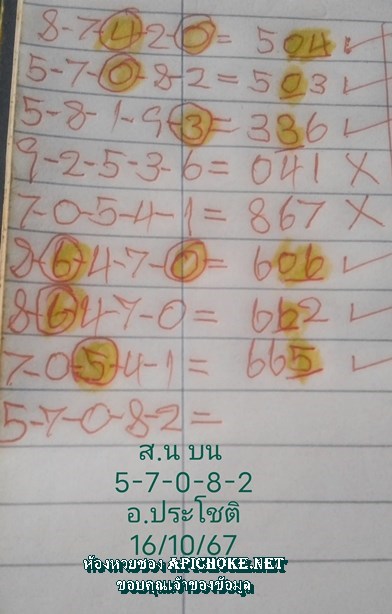 8-7-4-2-0= 504 ✓
5-7-0-8-2=503 ✓
5-8-1-9-3= 336 ✓
9-2-5-3-6= 041 X
7-0-5-4-1= 867 X
8-6-4-7-0= 606 ✓
8-6-4-7-0= 662 ✓
7-0-5-4-1= 665 ✓
5-7-0-8-2=
ส.น บน
5-7-0-8-2
อ.ประโชติ
16/10/67
ห้องหวยซอง APICHOKE.NET
ขอบคุณเจ้าของข้อมูล